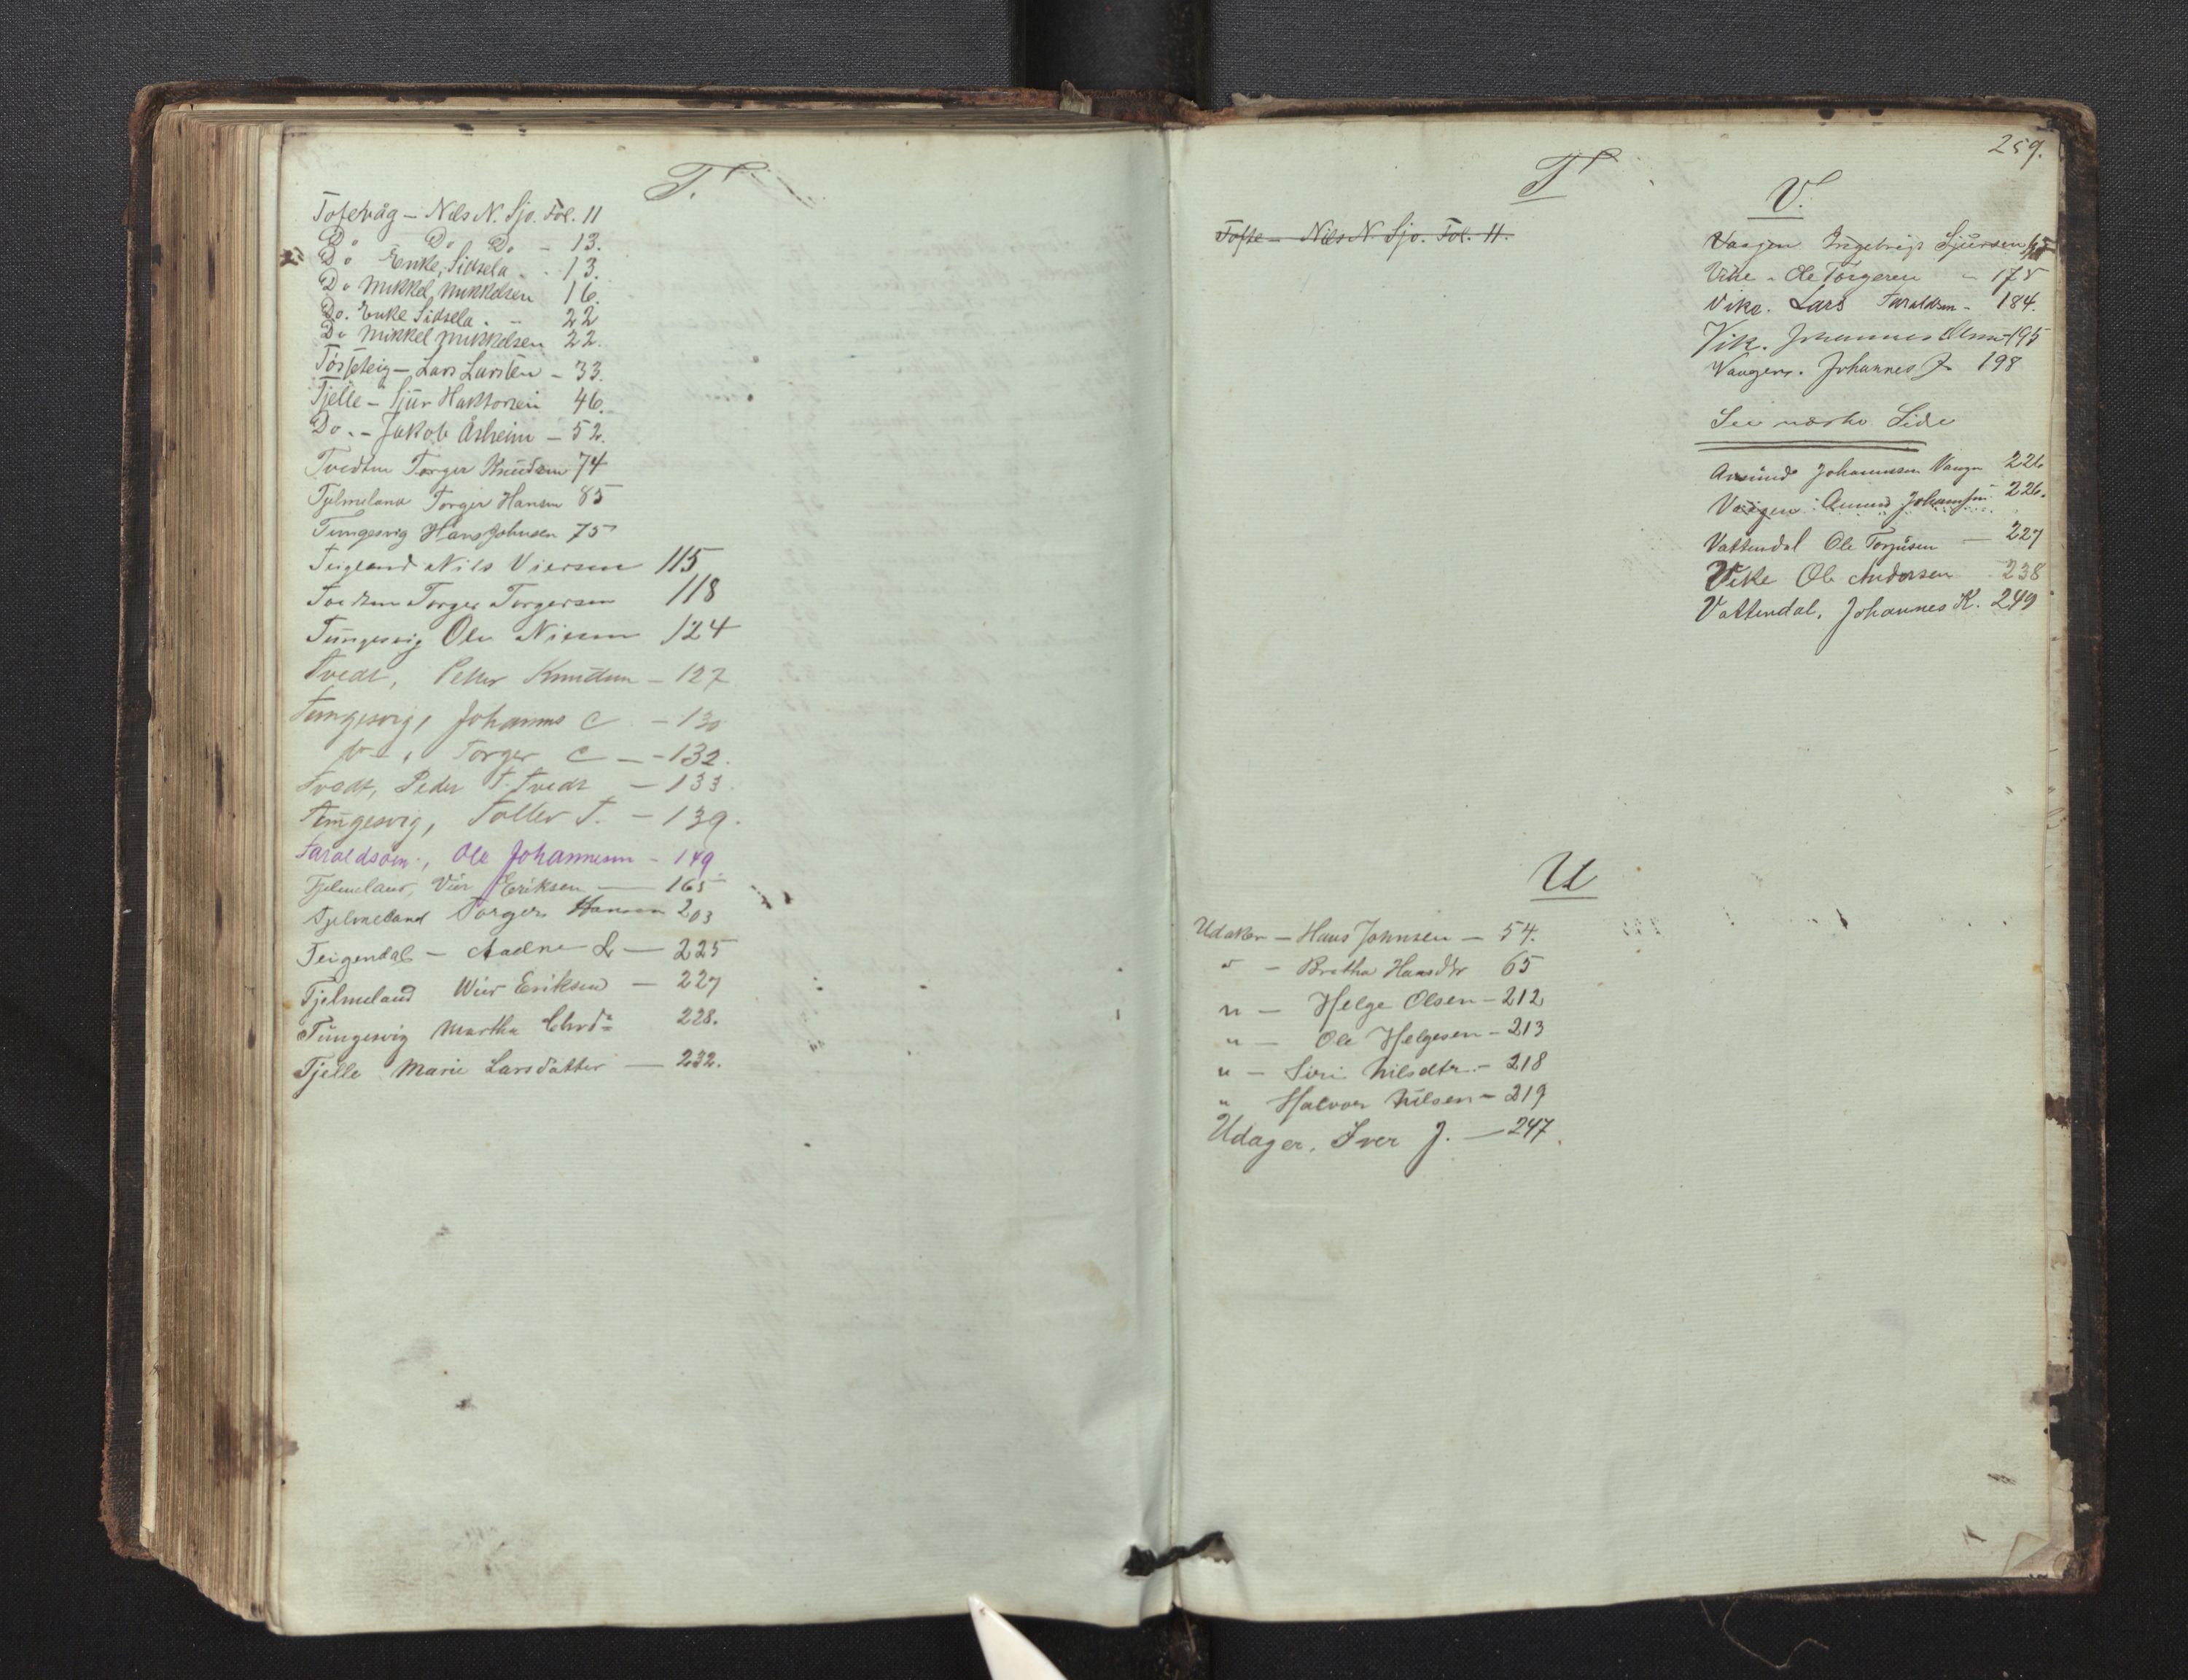 T.
Toftevåg – Nils N. Sjo. Fol. 11
Do Do Do – 13.
Do Enke, Sidsela . . 13.
Do Mikkel Mikkelsen 16.
Do. Enke Sidsela . – 22
Do Mikkel Mikkelsen 22.
Tosketeig – Lars Larsen – 33.
Tjelle – Sjur Haktorsen 46.
Do. – Jakob Åsheim – 52.
Tvedten Torger Knudsen 74
Tjelmeland Torger Hansen 85
Tungesvig Hans Johnsen 75
Teigland Nils Viersen 115
Tvedten Torger Torgersen 118
Tungesvig Ole Nielsen 124
Tvedt, Peder Knudsen – 127
Tungesvig, Johannes C – 130
do – , Torger C – 132.
Tvedt, Peder T. Tvedt – 133.
Tungesvig, Tollev T. – 139.
Taraldsøen, Ole Johannesen – 149
Tjelmeland, Vier Eriksen — 165
Tjelmeland Torger Hansen 203
Teigendal – Aadne L — 225
Tjelmeland Wier Eriksen – 227
Tungesvig Martha Chrd. 228.
Tjelle Marie Larsdatter — 232.
259.
T
Tofte – Nils N. Sjo. Fol. 11.
V.
Vaagen Ingebrigt Sjursen
Vike – Ole Torgersen – 175
Vike. Lars Taraldsen – 184.
Vik. Johannes Olsen – 195
Vaagen. Johannes J. 198
See næste Side
Amund Johannesen Vaage 226
Vaagen Amund Johannesen 226.
Vattendal Ole Torjusen — 227
Vike Ole Andersen 238
Vattendal, Johannes K. 249
U
Udaker – Hans Johnsen – 54.
" – Bretha Hansdtr 65
" – Helge Olsen – 212
" – Ole Helgesen – 213
" – Siri Nilsdtr. – 218
" Halvor Nilsen – 219
Udager, Iver J. — 247.